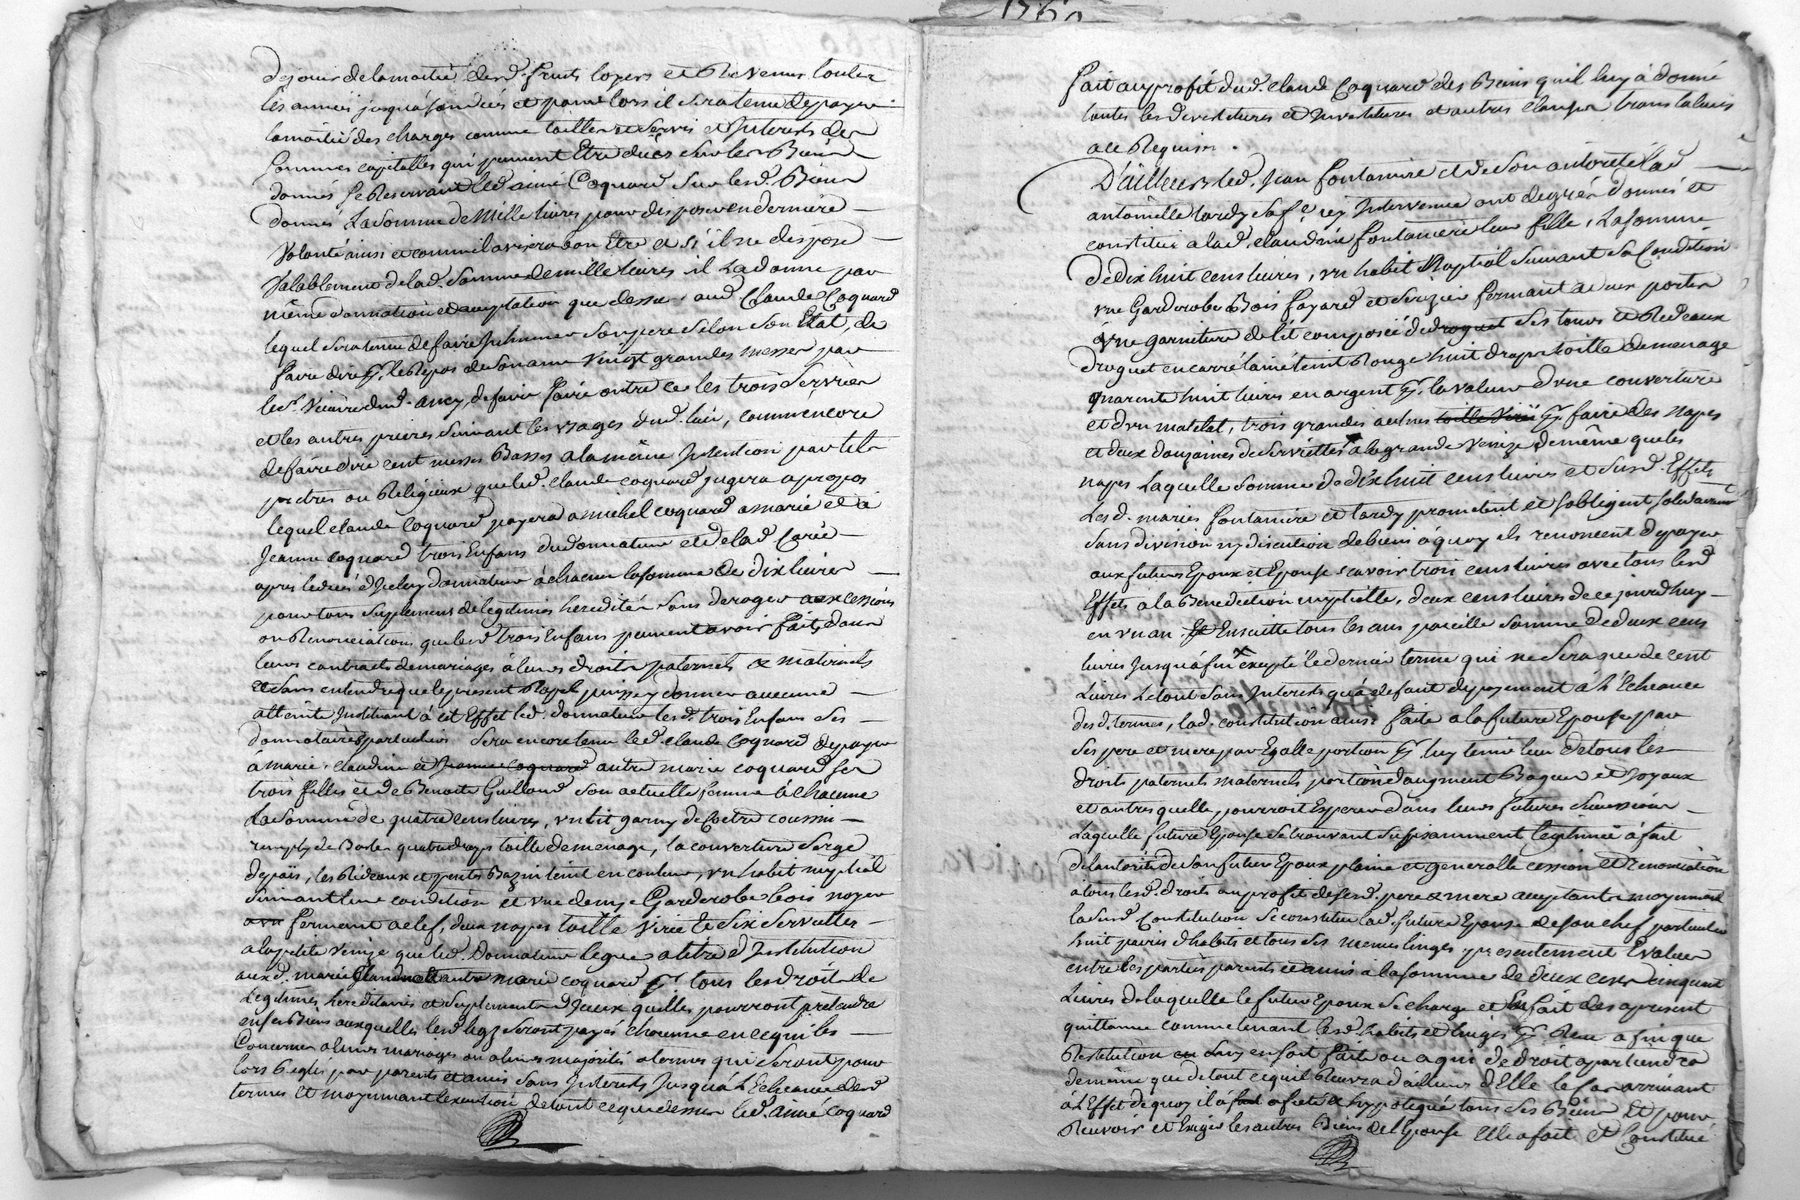 1760
de jouir de la moitié desd. fruits loyers et Revenus toutes
les années jusqu'a son deces et pour lors il sera tenu de payer
la moitié des charges comme tailles et servis et Interests des
sommes capitalles qui peuvent Etre dues sur les Biens
donnés se Reservant led. aimé Coquard sur lesd. Biens
donnés La somme de Mille livres pour disposer en derniére
Volonté ainsi et comme il avisera bon Etre et s'il ne dispose
Valablement de lad. somme de mille livres il La donne par
même donnation et acceptation que dessus aud Claude Coquard
lequel sera tenu de faire Inhumer son pere selon son Etat, de
faire dire pr. le Repos de son ame Vingt grandes messes par
le sr. Vicaire dud. ancy, de faire faire outre ce les trois services
et les autres prieres suivant les usages dud. lieu, comme encore
de faire dire cent messes Basses a la même Intention par tels
pretres ou Religieux que led. claude coquard jugera apropos
lequel claude Coquard payera a michel coquard a marie et à
Jeanne coquard trois Enfans dud donnateur et de lad Carié
apres le deces d'Iceluy donnateur à chacun la somme de dix livres
pour tous supplemens de legitimes hereditér sans deroger aux cessions
ou Renonciations que lesd trois Enfans peuvent avoir faits dans
leurs contracts de mariages à leurs droits paternels & maternels
et sans entendre que le present Rapel puisse y donner aucune
atteinte Instituant à cet Effet led. donnateur lesd. trois Enfans ses
donnataires particuliers sera encore tenu led. claude Coquard de payer
à marie, claudine et Jeanne coquard autre marie coquard ses
trois filles et de Benoite Guilloud son actuelle femme a chacune
La somme de quatre cens livres, un lit garny de Coetre coussin
remply de Bales quatre draps toille de menage, la couverture serge
de pais, les Rideaux et pentes Bazin teint en couleur, un habit nuptial
suivant leur condition et une demye Garderobe bois noyer
fermant a clef, deux napes toille Virié et six serviettes
a la petite Venize que led. Donnateur legue a titre d'Institution
auxd. marie Claudine et autre marie coquard pr. tous les droits de
Legitimes hereditaires et suplements d'Iceux quelles pourront pretendre
en ses Biens auxquelles lesd legs seront payés chacune en ce qui les
Concerne a leurs mariages ou a leurs majorités a termes qui seront pour
lors Reglés par parents et amis sans Interests Jusqu'a L'Echeance desd
termes Et moyennant l'execution de tout ce que dessus led. aimé Coquard
fait au profit dud. claude Coquard des Biens qu'il luy à donné
toutes les devestitures et Investitures et autres clauses translatives
a ce Requises.
D'ailleurs led. Jean fontaniere et de son autorité lad
antoinette tardy sa fe. icy Intervenue ont de gré donnés et
constitués a lad. claudine fontaniere leur fille, La somme
de dix huit cens livres, un habit Nuptial suivant sa Condition
une Garderobe Bois fayard et serizier fermant a deux portes
une garniture de lit composée de droguet ses tours et Rideaux
droguet en carré laine teint Rouge huit draps toille de menage
quarente huit livres en argent pr. la valeur d'une couverture
et d'un matelat, trois grandes aulnes toille Virié pr. faire des napes
et deux douzaines de serviettes a la grande Venize de même que les
napes Laquelle somme de dix huit cens livres et susd. Effets
Lesd. mariés fontaniere et tardy promettent et sobligent solidairement
sans division ny discution de biens à quoy ils renoncent de payer
aux futurs Epoux et Epouse scavoir trois cens livres avec tous lesd
Effets a la Benediction nuptialle, deux cens livres de ce jourd'huy
en un an. Et Ensuitte tous les ans pareille somme de deux cens
livres Jusqu'a fin excepté le dernier terme qui ne sera que de cent
Livres Le tout sans Interests qu'a defaut de payement à L'Echeance
desd. termes, lad. constitution ainsi faite a la future Epouse par
ses pere et mere par Egalle portion pr. luy tenir lieu de tous les
droits paternels maternels portion d'augment Bagues et Joyaux
et autres quelle pourroit Esperer dans leurs futures successions
Laquelle future Epouse se trouvant suffisamment legitimée à fait
de l'autorité de son futur Epoux plaine et generalle cession et renonciation
à tous lesd. droits au profit de sesd. pere & mere acceptants moyennant
la susd. Constitution se constitue lad. future Epouse de son chef particulier
huit paires d'habits et tous ses menus linges presentement Evalués
entre les parties parents et amis à la somme de deux cens cinquante
Livres de laquelle le futur Epoux se charge et En fait des apresent
quittance comme tenant lesd. habits et linges pr. Reçu afin que
Restitution en soy en soit faite ou a qui de droit apartiendra
de même que de tout ce quil Recevra d'ailleurs d'Elle le Cas arrivant
à L'Effet de quoy il a affecté & hypotequé tous ses Biens Et pour
Recevoir et Exiger les autres Biens de l'Epouse Elle a fait et Constitué